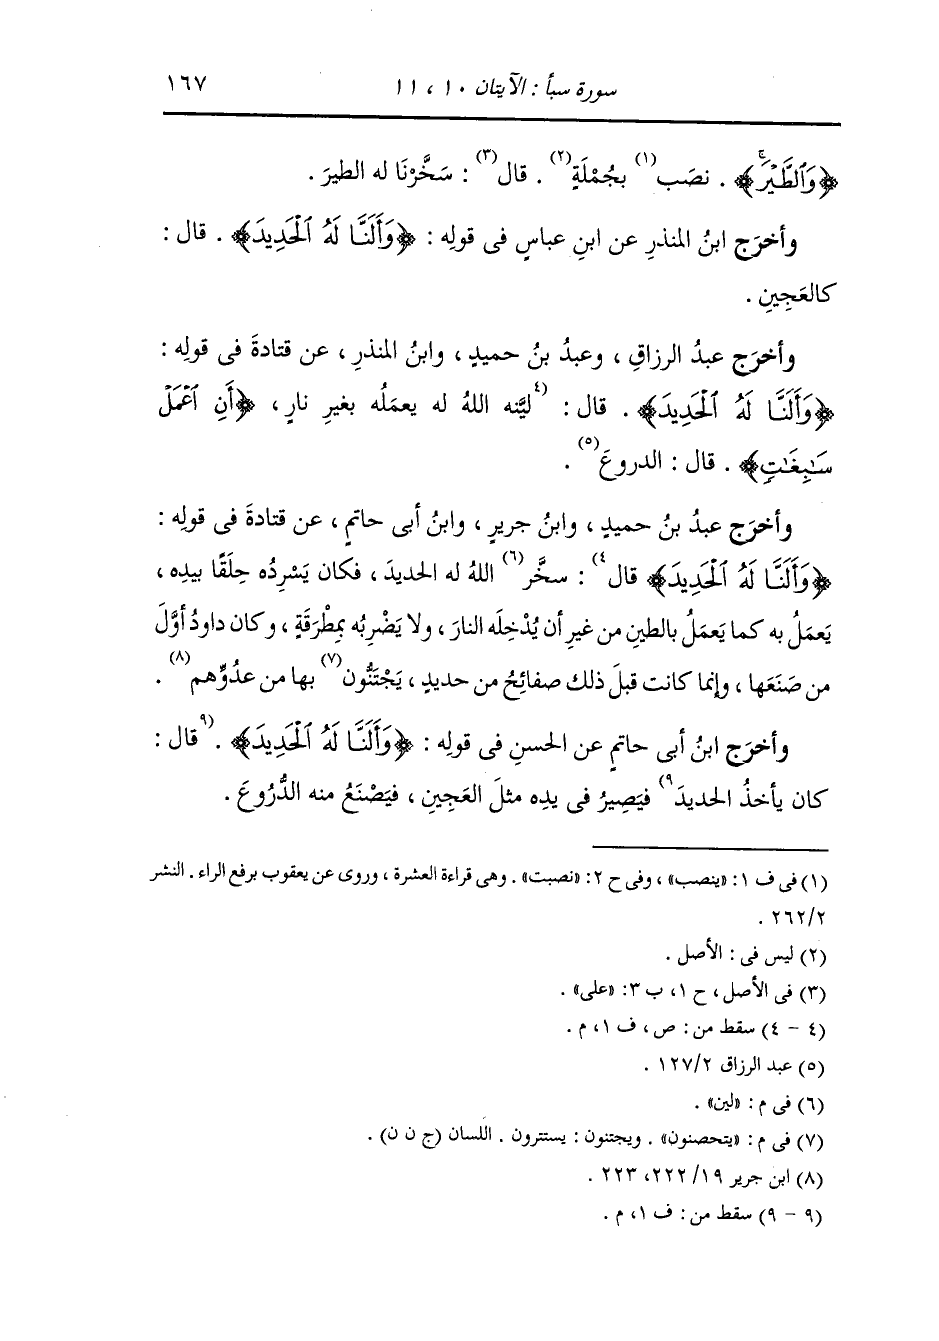 سورة سبأ : الآيتان ١٠ ، ١١ ١٦٧
﴿وَٱلطَّيْرَۖ﴾ . نصَب(١) بجُمْلَةٍ(٢) . قال(٣) : سَخَّرْنَا له الطيرَ .
وأخرَج ابنُ المنذرِ عن ابنِ عباسٍ فى قولِه : ﴿وَأَلَنَّا لَهُ ٱلْحَدِيدَ﴾ . قال :
كالعَجِينِ .
وأخرَج عبدُ الرزاقِ ، وعبدُ بنُ حميدٍ ، وابنُ المنذرِ ، عن قتادةَ فى قولِه :
﴿وَأَلَنَّا لَهُ ٱلْحَدِيدَ﴾ . قال : (٤ليَّنه اللهُ له يعمَلُه بغيرِ نارٍ ، ﴿أَنِ ٱعْمَلْ
سَٰبِغَٰتٍ﴾ . قال : الدروعَ(٥) .
وأخرَج عبدُ بنُ حميدٍ ، وابنُ جريرٍ ، وابنُ أبى حاتمٍ ، عن قتادةَ فى قولِه :
﴿وَأَلَنَّا لَهُ ٱلْحَدِيدَ﴾ قال٤) : سخَّر(٦) اللهُ له الحديدَ ، فكان يَسْرِدُه حِلَقًا بيدِه ،
يَعمَلُ به كما يَعمَلُ بالطينِ من غيرِ أن يُدْخِلَه النارَ ، ولا يَضْرِبُه بمِطْرَقَةٍ ، وكان داودُ أوَّلَ
من صَنَعَها ، وإنما كانت قبلَ ذلك صفائِحُ من حديدٍ ، يَجْتَنُّون(٧) بها من عدُوِّهم(٨) .
وأخرَج ابنُ أبى حاتمٍ عن الحسنِ فى قولِه : ﴿وَأَلَنَّا لَهُ ٱلْحَدِيدَ﴾ . (٩قال :
كان يأخذُ الحديدَ٩) فيَصِيرُ فى يدِه مثلَ العَجِينِ ، فيَصْنَعُ منه الدُّرُوعَ .
(١) فى ف ١ : «ينصب» ، وفى ح ٢ : «نصبت» . وهى قراءة العشرة ، وروى عن يعقوب برفع الراء . النشر
٢٦٢/٢ .
(٢) ليس فى : الأصل .
(٣) فى الأصل ، ح ١، ب ٣: «على» .
(٤ - ٤) سقط من : ص ، ف ١، م .
(٥) عبد الرزاق ١٢٧/٢ .
(٦) فى م : «لين» .
(٧) فى م : «يتحصنون» . ويجتنون : يستترون . اللسان (ج ن ن) .
(٨) ابن جرير ١٩/ ٢٢٢، ٢٢٣ .
(٩ - ٩) سقط من : ف ١، م .